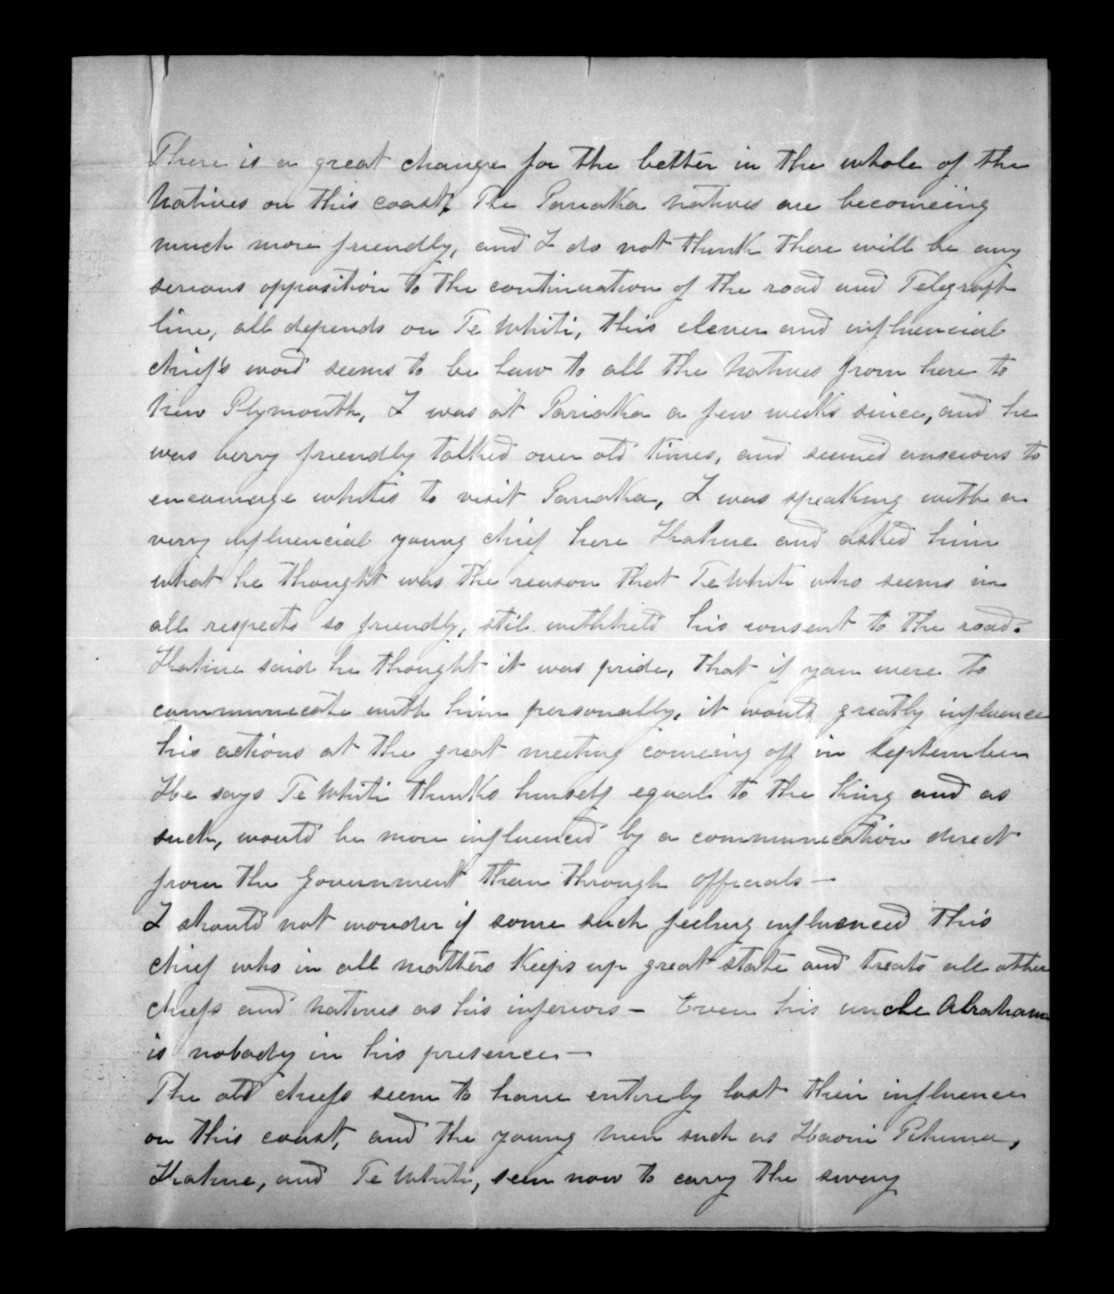 There is a great change for the better in the whole of the
Natives on this coast, The Pariaka natives are becomeing
much more friendly, and I do not think there will be any
serious opposition to the continuation of the road and Telegraph
line, all depends on Te Whiti, this clever and influencial
chief's word seems to be law to all the Natives from here to
New Plymouth, I was at Pariaka a few weeks since, and he
was very friendly talked over old times, and seemed anscious to
encourage whites to visit Pariaka, I was speaking with a
very influencial young chief here Hakne and asked him
what he thought was the reason that Te Whiti who seems in
all respects so friendly, stil withheld his consent to the road.
said he thought it was pride, that if you were to
communicate with him personally, it would greatly influence
his actions at the great meeting comeing off in September
He says Te Whiti thinks himself equal to the King and as
such, would be more influenced by a communication direct
from the Government than through officials —
I should not wonder if some such feeling influenced this
chief who in all matters keeps up great state and treats all other
chiefs and natives as his inferiors — Even his uncle Abraham
is nobody in his presence —
The old chiefs seem to have entirely lost their influence
on this coast, and the young men such as Haoni
and Te Whiti, seem now to carry the sway